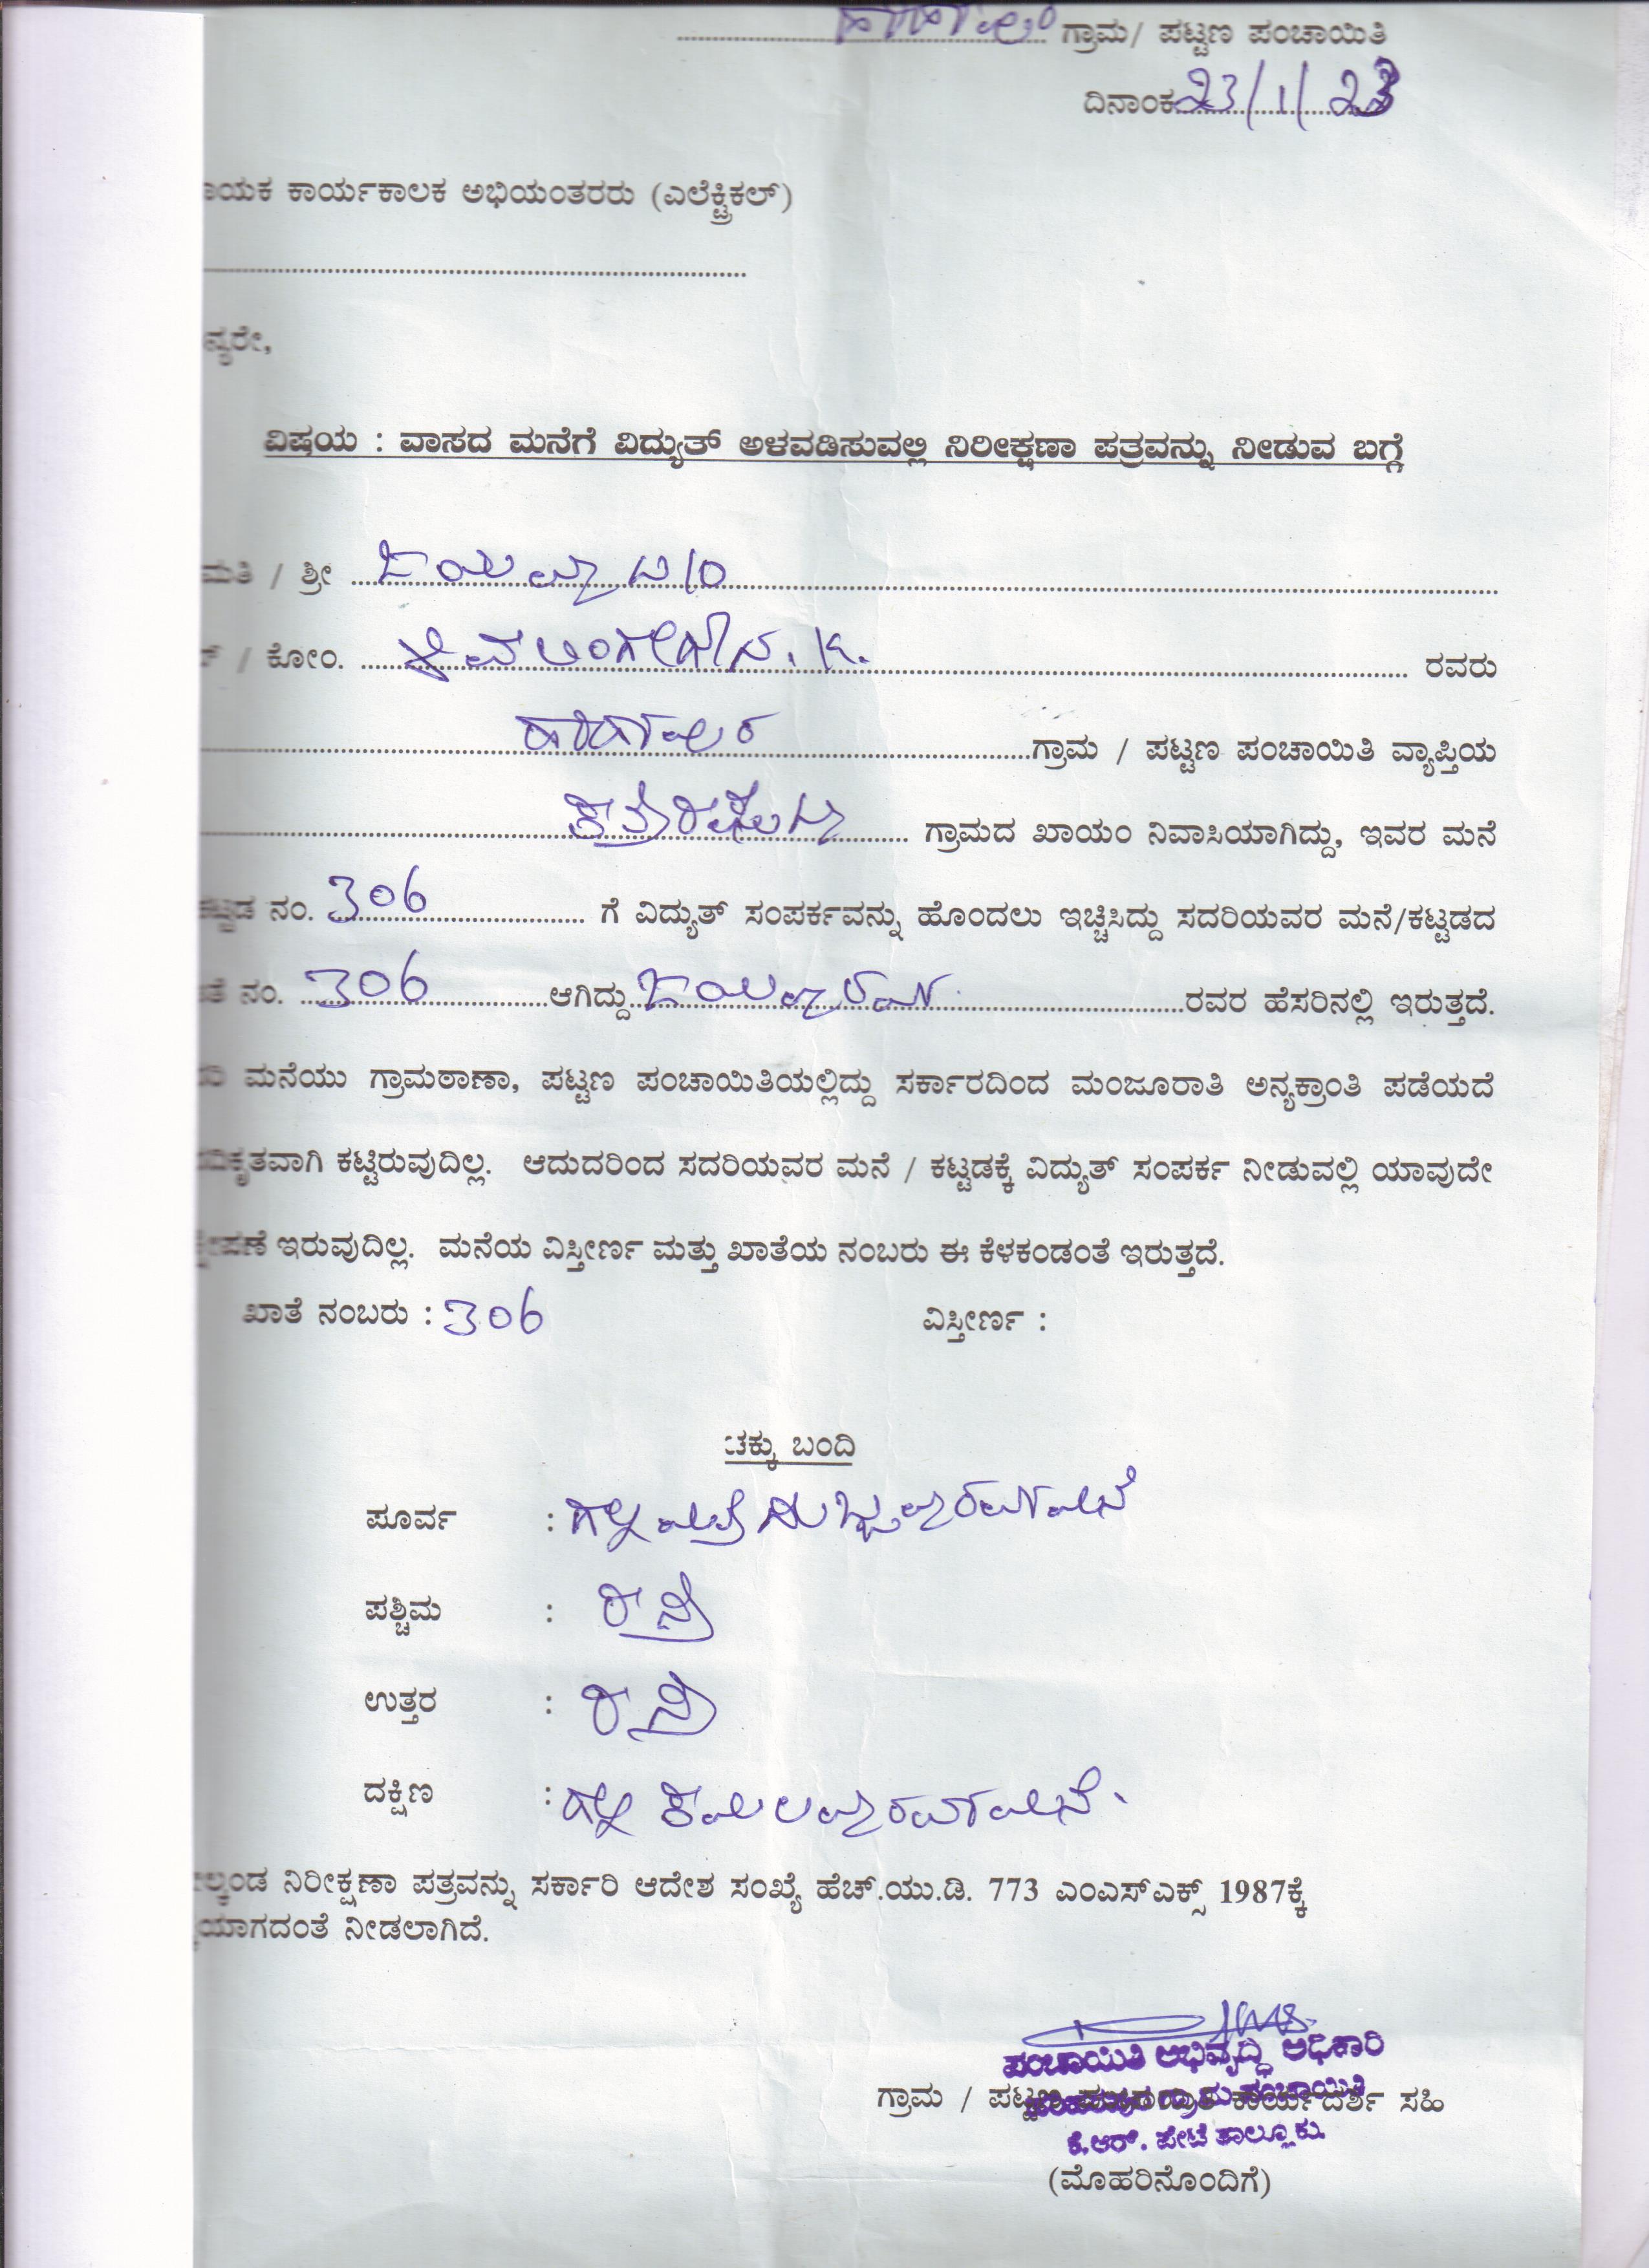 ಗ್ರಾಮ/ ಪಟ್ಟಣ ಪಂಚಾಯಿತಿ
ದಿನಾಂಕ 23/1/23
ಾಯಕ ಕಾರ್ಯಕಾಲಕ ಅಭಿಯಂತರರು (ಎಲೆಕ್ಟ್ರಿಕಲ್)
ನ್ಯರೇ,
ವಿಷಯ : ವಾಸದ ಮನೆಗೆ ವಿದ್ಯುತ್ ಅಳವಡಿಸುವಲ್ಲಿ ನಿರೀಕ್ಷಣಾ ಪತ್ರವನ್ನು ನೀಡುವ ಬಗ್ಗೆ
ಮತಿ / ಶ್ರೀ ಜಯಮ್ಮ
/ ಕೋಂ. ಶಿವಲಿಂಗೇಗೌಡ. K. ರವರು
ಗ್ರಾಮ / ಪಟ್ಟಣ ಪಂಚಾಯಿತಿ ವ್ಯಾಪ್ತಿಯ
ಗ್ರಾಮದ ಖಾಯಂ ನಿವಾಸಿಯಾಗಿದ್ದು, ಇವರ ಮನೆ
ಕಟ್ಟಡ ನಂ. 306 ಗೆ ವಿದ್ಯುತ್ ಸಂಪರ್ಕವನ್ನು ಹೊಂದಲು ಇಚ್ಚಿಸಿದ್ದು ಸದರಿಯವರ ಮನೆ/ಕಟ್ಟಡದ
ತೆ ನಂ. 306 ಆಗಿದ್ದು ಜಯಮ್ಮ ರವರ ಹೆಸರಿನಲ್ಲಿ ಇರುತ್ತದೆ.
ರಿ ಮನೆಯು ಗ್ರಾಮಠಾಣಾ, ಪಟ್ಟಣ ಪಂಚಾಯಿತಿಯಲ್ಲಿದ್ದು ಸರ್ಕಾರದಿಂದ ಮಂಜೂರಾತಿ ಅನ್ಯಕ್ರಾಂತಿ ಪಡೆಯದೆ
ದಿಕೃತವಾಗಿ ಕಟ್ಟಿರುವುದಿಲ್ಲ. ಆದುದರಿಂದ ಸದರಿಯವರ ಮನೆ / ಕಟ್ಟಡಕ್ಕೆ ವಿದ್ಯುತ್ ಸಂಪರ್ಕ ನೀಡುವಲ್ಲಿ ಯಾವುದೇ
ಕ್ಷೇಪಣೆ ಇರುವುದಿಲ್ಲ. ಮನೆಯ ವಿಸ್ತೀರ್ಣ ಮತ್ತು ಖಾತೆಯ ನಂಬರು ಈ ಕೆಳಕಂಡಂತೆ ಇರುತ್ತದೆ.
ಖಾತೆ ನಂಬರು : 306 ವಿಸ್ತೀರ್ಣ :
ಚಕ್ಕು ಬಂದಿ
ಪೂರ್ವ :
ಪಶ್ಚಿಮ : ರಸ್ತೆ
ಉತ್ತರ : ರಸ್ತೆ
ದಕ್ಷಿಣ :
ಲ್ಕಂಡ ನಿರೀಕ್ಷಣಾ ಪತ್ರವನ್ನು ಸರ್ಕಾರಿ ಆದೇಶ ಸಂಖ್ಯೆ ಹೆಚ್.ಯು.ಡಿ. 773 ಎಂಎಸ್‌ಎಕ್ಸ್ 1987ಕ್ಕೆ
ಯಾಗದಂತೆ ನೀಡಲಾಗಿದೆ.
ಪಂಚಾಯಿತಿ ಅಭಿವೃದ್ಧಿ ಅಧಿಕಾರಿ
ಗ್ರಾಮ / ಪಟ್ಟಣ ಕಾರ್ಯದರ್ಶಿ ಸಹಿ
ಕೆ.ಆರ್. ಪೇಟೆ ತಾಲ್ಲೂಕು.
(ಮೊಹರಿನೊಂದಿಗೆ)